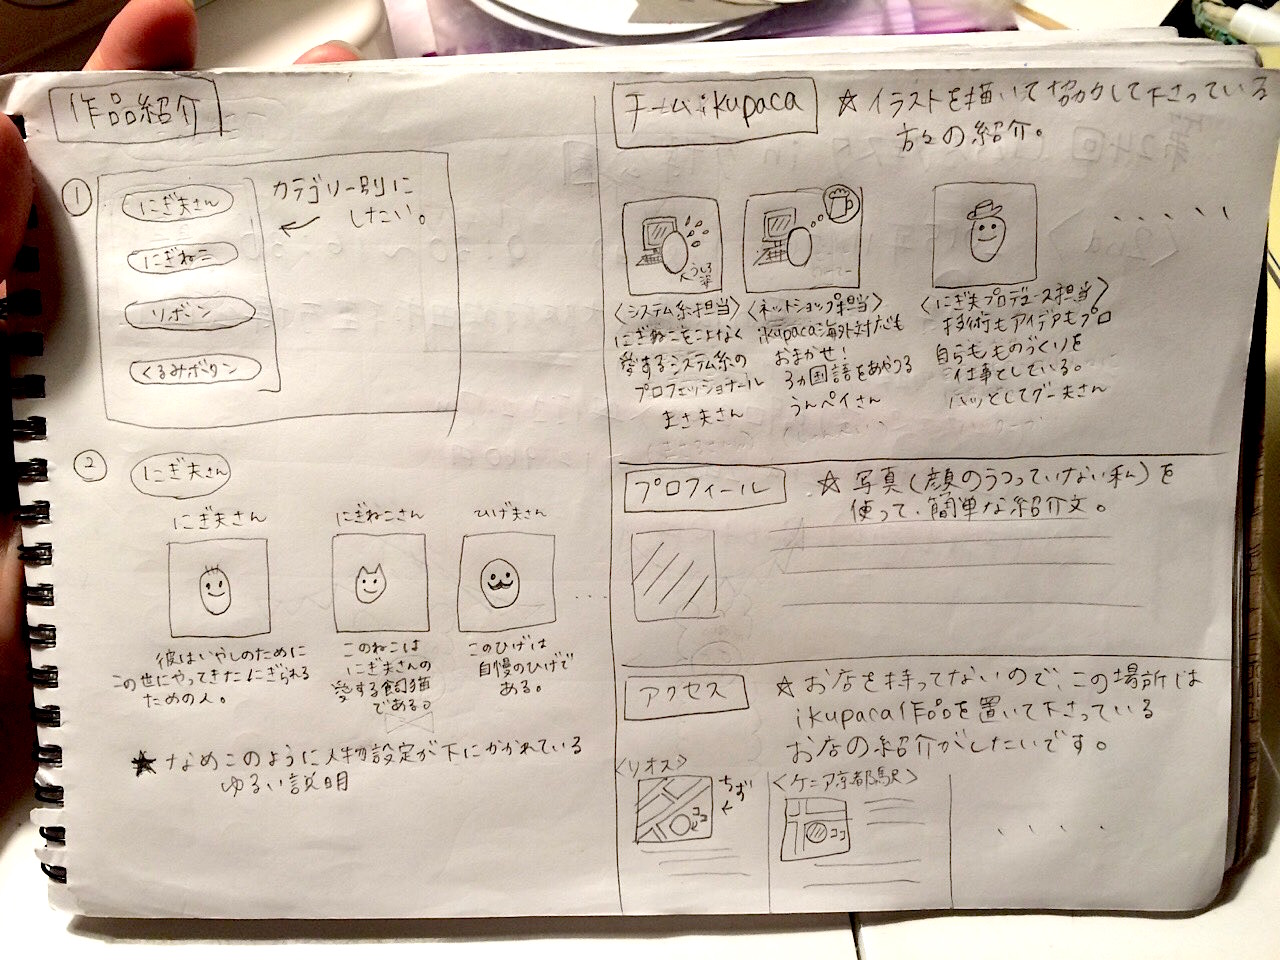 作品紹介
①
にぎ夫さん
にぎねこ
リボン
くるみボタン
カテゴリー別に
したい。
②
にぎ夫さん
にぎ夫さん
彼はいやしのために
この世にやってきたにぎられる
ための人。
にぎねこさん
このねこは
にぎ夫さんの
愛する飼猫
である。
ひげ夫さん
このひげは
自慢のひげで
ある。
★ なめこのように人物設定が下にかかれている
ゆるい説明
チームikupaca
☆ イラストを描いて協力して下さっている
方々の紹介。
うしろ
姿
〈システム系担当〉
にぎねこをこよなく
愛するシステム系の
プロフェッショナール
まさ夫さん
〈ネットショップ担当〉
ikupaca海外対応も
おまかせ!
3ヵ国語をあやつる
うんペイさん
〈にぎ夫プロデュース担当〉
技術もアイデアもプロ
自らもものづくりを
仕事としている。
ハッとしてグー夫さん
プロフィール
☆ 写真(顔のうつっていない私)を
使って、簡単な紹介文。
アクセス
☆ お店を持ってないので、この場所は
ikupaca作品を置いて下さっている
お店の紹介がしたいです。
〈リオス〉
ちず
ココ
〈ケニア京都駅〉
ココ